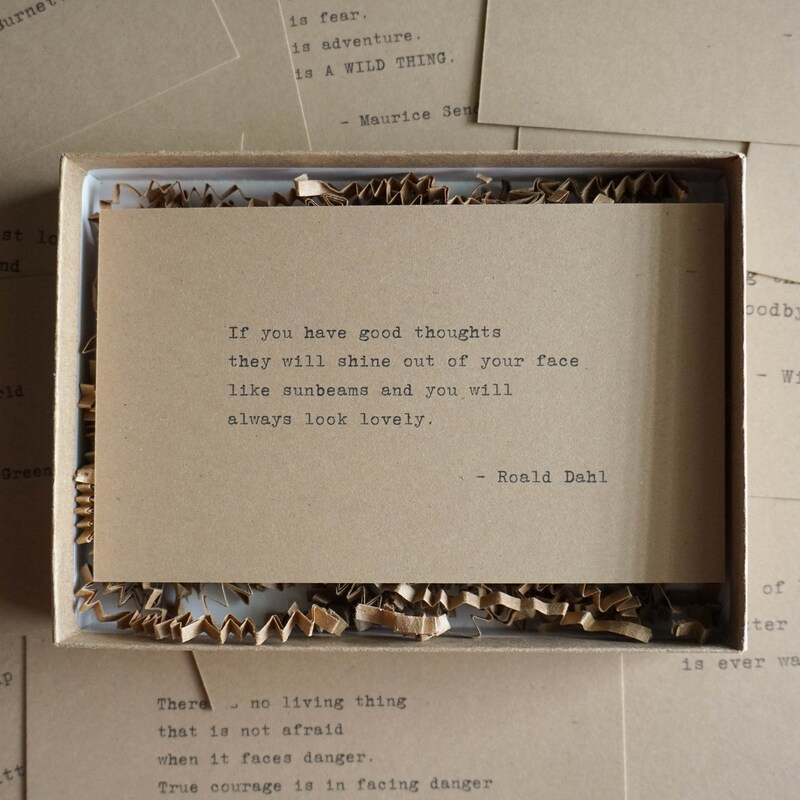 is fear.
is adventure.
is A WILD THING.
- Maurice
If you have good thoughts
they will shine out of your face
like sunbeams and you will
always look lovely.
- Roald Dahl
of
is ever
There no living thing
that is not afraid
when it faces danger.
True courage is in facing danger